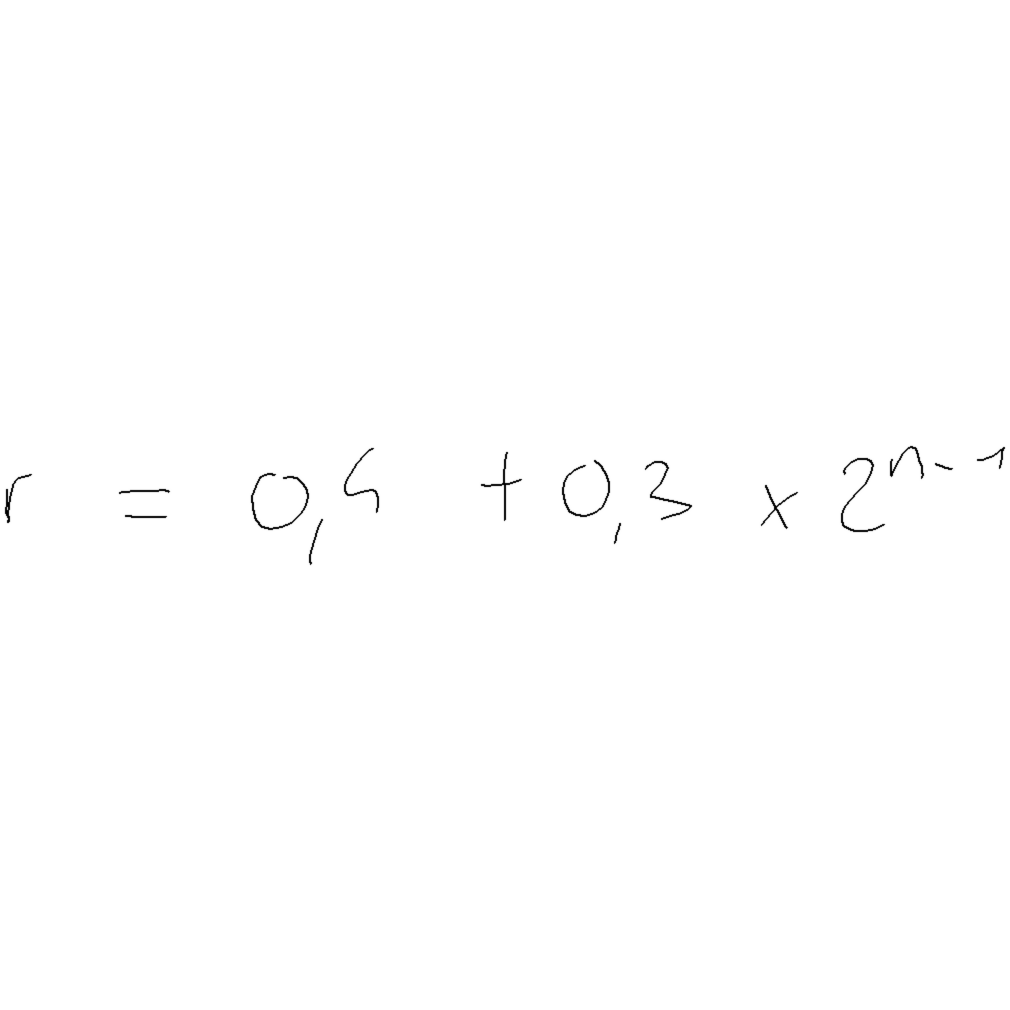 r = 0,4 + 0,3 × 2ⁿ⁻¹